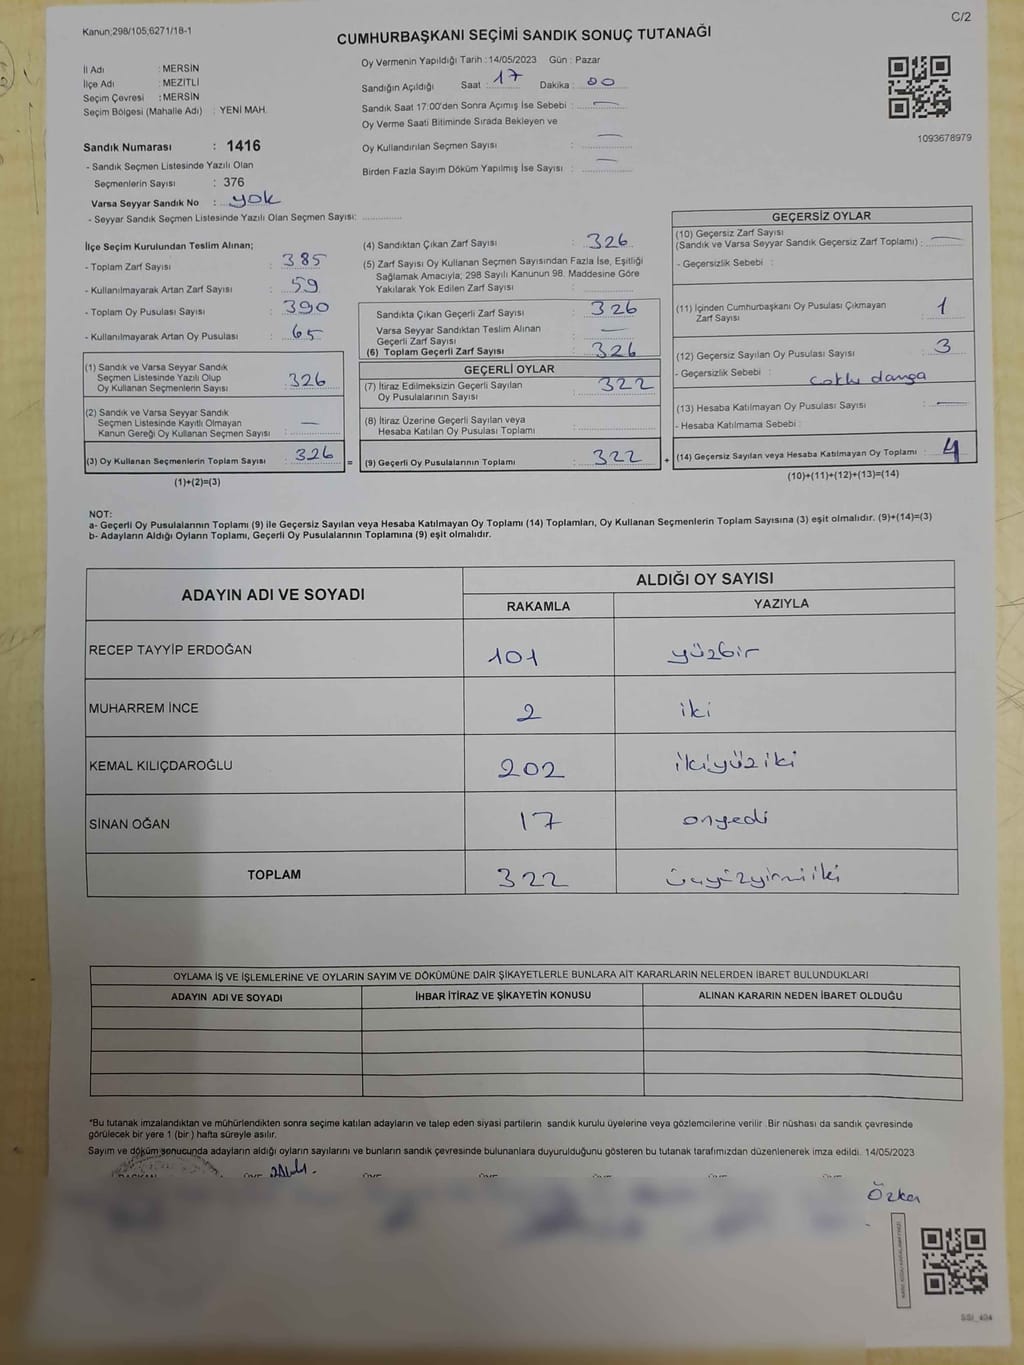 C/2
Kanun;298/105,6271/18-1
CUMHURBAŞKANI SEÇİMİ SANDIK SONUÇ TUTANAĞI
İl Adı : MERSİN
İlçe Adı : MEZİTLİ
Seçim Çevresi : MERSİN
Seçim Bölgesi (Mahalle Adı) : YENİ MAH.
Sandık Numarası : 1416
- Sandık Seçmen Listesinde Yazılı Olan
Seçmenlerin Sayısı : 376
Varsa Seyyar Sandık No : yok
- Seyyar Sandık Seçmen Listesinde Yazılı Olan Seçmen Sayısı:
Oy Vermenin Yapıldığı Tarih : 14/05/2023 Gün : Pazar
Sandığın Açıldığı Saat : 17 Dakika : 00
Sandık Saat 17:00'den Sonra Açımış İse Sebebi : —
Oy Verme Saati Bitiminde Sırada Bekleyen ve
Oy Kullandırılan Seçmen Sayısı : —
Birden Fazla Sayım Döküm Yapılmış İse Sayısı : —
1093678979
İlçe Seçim Kurulundan Teslim Alınan;
- Toplam Zarf Sayısı : 385
- Kullanılmayarak Artan Zarf Sayısı : 59
- Toplam Oy Pusulası Sayısı : 390
- Kullanılmayarak Artan Oy Pusulası : 65
(1) Sandık ve Varsa Seyyar Sandık
Seçmen Listesinde Yazılı Olup
Oy Kullanan Seçmenlerin Sayısı : 326
(2) Sandık ve Varsa Seyyar Sandık
Seçmen Listesinde Kayıtlı Olmayan
Kanun Gereği Oy Kullanan Seçmen Sayısı : —
(3) Oy Kullanan Seçmenlerin Toplam Sayısı : 326
(1)+(2)=(3)
(4) Sandıktan Çıkan Zarf Sayısı : 326
(5) Zarf Sayısı Oy Kullanan Seçmen Sayısından Fazla İse, Eşitliği
Sağlamak Amacıyla; 298 Sayılı Kanunun 98. Maddesine Göre
Yakılarak Yok Edilen Zarf Sayısı :
Sandıkta Çıkan Geçerli Zarf Sayısı : 326
Varsa Seyyar Sandıktan Teslim Alınan
Geçerli Zarf Sayısı : —
(6) Toplam Geçerli Zarf Sayısı : 326
GEÇERLİ OYLAR
(7) İtiraz Edilmeksizin Geçerli Sayılan
Oy Pusulalarının Sayısı : 322
(8) İtiraz Üzerine Geçerli Sayılan veya
Hesaba Katılan Oy Pusulası Toplamı :
= (9) Geçerli Oy Pusulalarının Toplamı : 322
GEÇERSİZ OYLAR
(10) Geçersiz Zarf Sayısı
(Sandık ve Varsa Seyyar Sandık Geçersiz Zarf Toplamı) : —
- Geçersizlik Sebebi :
(11) İçinden Cumhurbaşkanı Oy Pusulası Çıkmayan
Zarf Sayısı : 1
(12) Geçersiz Sayılan Oy Pusulası Sayısı : 3
- Geçersizlik Sebebi : çoklu damga
(13) Hesaba Katılmayan Oy Pusulası Sayısı : —
- Hesaba Katılmama Sebebi :
+ (14) Geçersiz Sayılan veya Hesaba Katılmayan Oy Toplamı : 4
(10)+(11)+(12)+(13)=(14)
NOT:
a- Geçerli Oy Pusulalarının Toplamı (9) ile Geçersiz Sayılan veya Hesaba Katılmayan Oy Toplamı (14) Toplamları, Oy Kullanan Seçmenlerin Toplam Sayısına (3) eşit olmalıdır. (9)+(14)=(3)
b- Adayların Aldığı Oyların Toplamı, Geçerli Oy Pusulalarının Toplamına (9) eşit olmalıdır.
ADAYIN ADI VE SOYADI ALDIĞI OY SAYISI
RAKAMLA YAZIYLA
RECEP TAYYİP ERDOĞAN 101 yüzbir
MUHARREM İNCE 2 iki
KEMAL KILIÇDAROĞLU 202 ikiyüziki
SİNAN OĞAN 17 onyedi
TOPLAM 322 üçyüzyirmiiki
OYLAMA İŞ VE İŞLEMLERİNE VE OYLARIN SAYIM VE DÖKÜMÜNE DAİR ŞİKAYETLERLE BUNLARA AİT KARARLARIN NELERDEN İBARET BULUNDUKLARI
ADAYIN ADI VE SOYADI İHBAR İTİRAZ VE ŞİKAYETİN KONUSU ALINAN KARARIN NEDEN İBARET OLDUĞU
*Bu tutanak imzalandıktan ve mühürlendikten sonra seçime katılan adayların ve talep eden siyasi partilerin sandık kurulu üyelerine veya gözlemcilerine verilir .Bir nüshası da sandık çevresinde
görülecek bir yere 1 (bir ) hafta süreyle asılır.
Sayım ve döküm sonucunda adayların aldığı oyların sayılarını ve bunların sandık çevresinde bulunanlara duyurulduğunu gösteren bu tutanak tarafımızdan düzenlenerek imza edildi. 14/05/2023